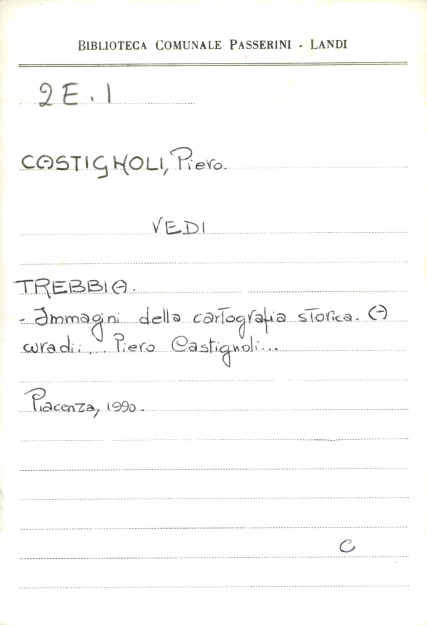 BIBLIOTECA COMUNALE PASSERINI - LANDI
2 E. 1
CASTIGNOLI, Piero.
VEDI
TREBBIA.
- Immagini della cartografia storica. A
cura di:... Piero Castignoli...
Piacenza, 1990.
C